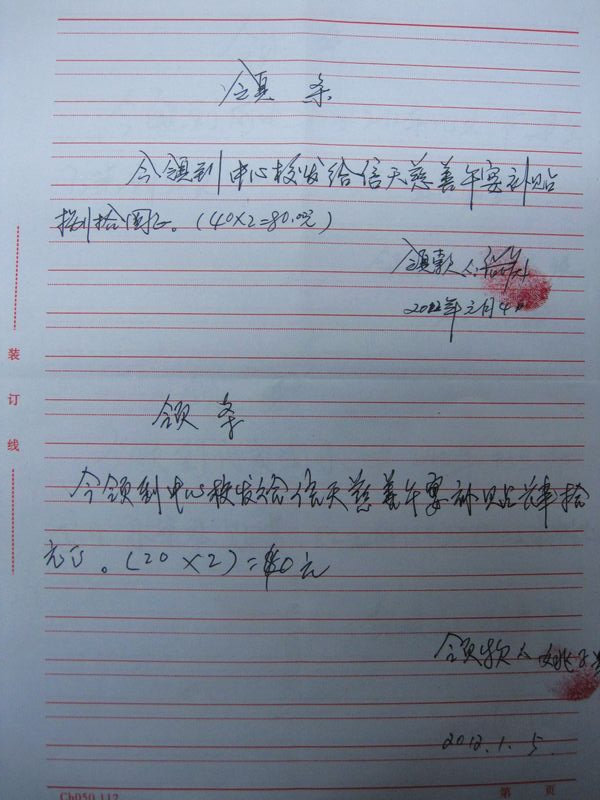 领条
今领到中心校发给信天慈善午宴补贴
捌拾圆正。(40×2=80.00元)
领款人:
2012年元月4
装订线
领条
今领到中心校发给信天慈善午宴补贴肆拾
元正。(20×2)=40元
领款人 姚
2012.1.5
Ch050.112 第 页